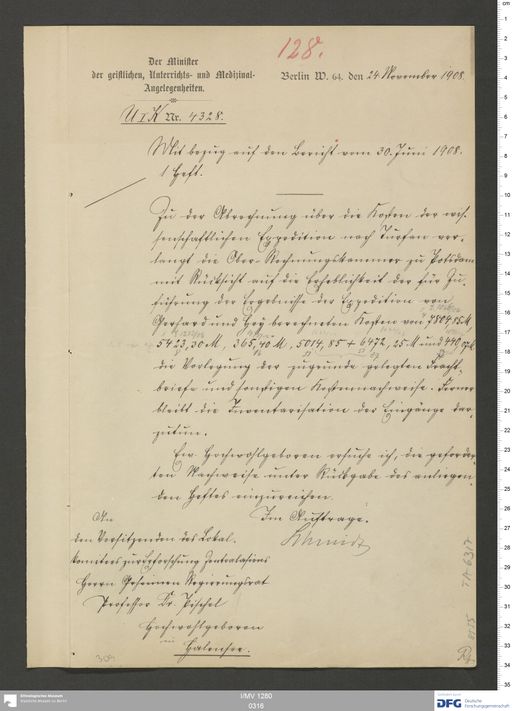 128.
Der Minister
der geistlichen, Unterrichts- und Medizinal-
Angelegenheiten.
Berlin W. 64. den 24. November 1908.
U I K Nr. 4328.
Mit Bezug auf den Bericht vom 30. Juni 1908.
1 Heft.
Zu der Abrechnung über die Kosten der wis-
senschaftlichen Expedition nach Turfan ver-
langt die Ober-Rechnungskammer zu Potsdam
mit Rücksicht auf die Erheblichkeit der für Zu-
führung der Ergebnisse der Expedition von
Gerhard und Hey berechneten Kosten von 7804,05 M
5423,30 M, 365,40 M, 5014,85 + 6472,25 M und 440
die Vorlegung der zugrunde gelegten Fracht-
briefe und sonstigen Kostennachweise. Ferner
bleibt die Inventarisation der Eingänge dar-
zutun.
Ew. Hochwohlgeboren ersuche ich, die geforder-
ten Nachweise unter Rückgabe des anliegen-
den Heftes einzureichen.
Im Auftrage.
Schmidt
An
den Vorsitzenden des Lokal-
komitees zur Erforschung Zentralasiens
Herrn Geheimen Regierungsrat
Professor Dr. Pischel
Hochwohlgeboren
in
Halensee.
309
TA 6317
I/MV 1260
0316
Ethnologisches Museum
Staatliche Museen zu Berlin
DFG Deutsche
Forschungsgemeinschaft